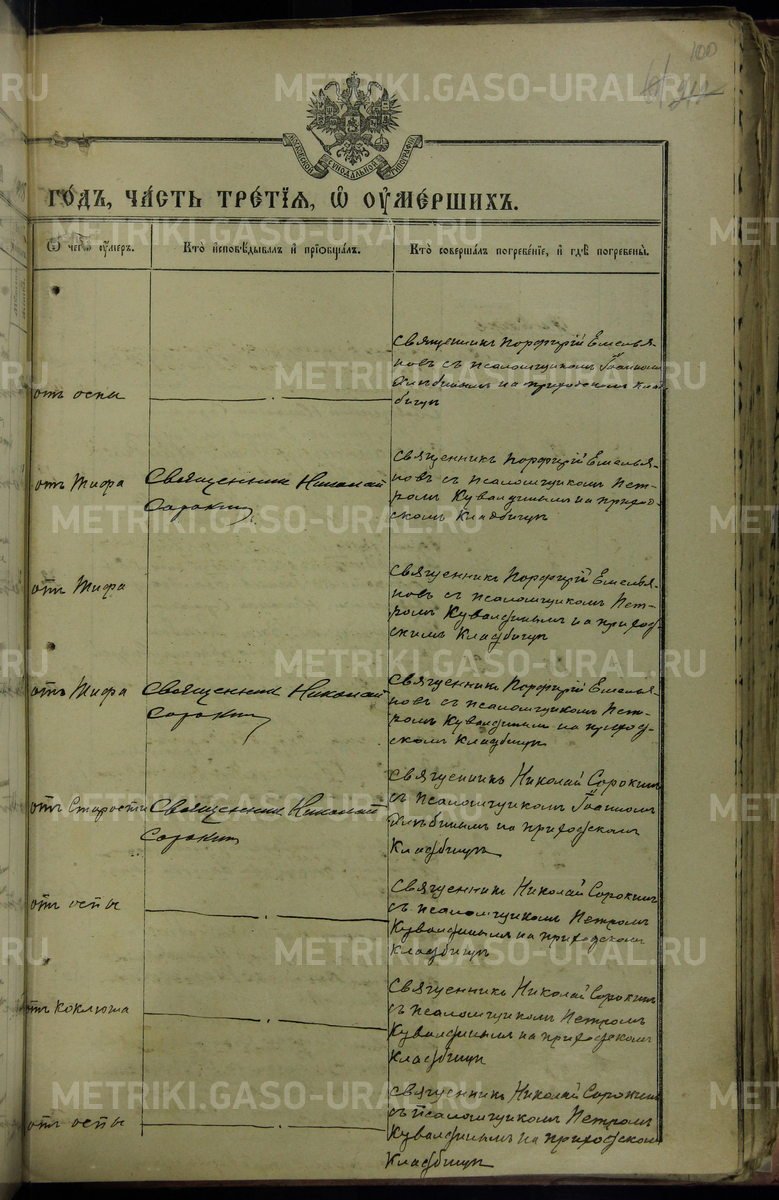 100
МОСКОВСКОЙ СѴНОДАЛЬНОЙ ТИПОГРАФІИ
ГО́ДЪ, ЧА́СТЬ ТРЕ́ТІѦ, Ѡ҆ ОУ҆МЕ́РШИХЪ.
Ѿ чегѡ̀ ᲂу҆́меръ.
Кто̀ и҆сповѣ́дывалъ и҆ прїѡбща́лъ.
Кто̀ соверша́лъ погребе́нїе, и҆ гдѣ̀ погребены̀.
отъ оспы
Священникъ Порфирій Емелья-
новъ съ псаломщикомъ Іоанномъ
Хлѣбинымъ на приходскомъ клад-
бищѣ
отъ Тифа
Священник Николай
Сорокин
Священникъ Порфирій Емелья-
новъ съ псаломщикомъ Пет-
ромъ Кувалдинымъ на приход-
скомъ Кладбищѣ
отъ Тифа
Священникъ Порфирій Емелья-
новъ съ псаломщикомъ Пет-
ромъ Кувалдинымъ на приход-
скимъ Кладбищѣ
отъ Тифа
Священник Николай
Сорокин
Священникъ Порфирій Емелья-
новъ съ псаломщикомъ Пет-
ромъ Кувалдинымъ на приход-
скомъ Кладбищѣ
отъ Старости
Священник Николай
Сорокин
Священникъ Николай Сорокинъ
съ псаломщикомъ Іоанномъ
Хлѣбинымъ на приходскомъ
Кладбищѣ
отъ оспы
Священникъ Николай Сорокинъ
съ псаломщикомъ Петромъ
Кувалдинымъ на приходскомъ
Кладбищѣ
отъ Коклюша
Священникъ Николай Сорокинъ
съ псаломщикомъ Петромъ
Кувалдинымъ на приходскомъ
Кладбищѣ
отъ оспы
Священникъ Николай Сорокинъ
съ псаломщикомъ Петромъ
Кувалдинымъ на приходскомъ
Кладбищѣ
METRIKI.GASO-URAL.RU